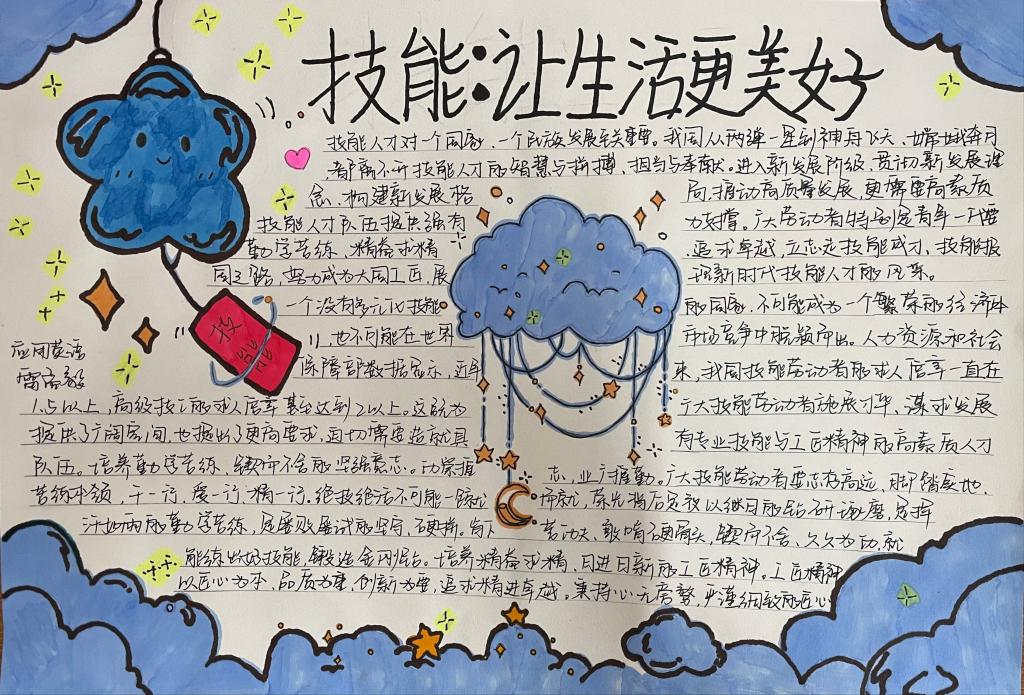 技能:让生活更美好
技能人才对一个国家、一个民族发展至关重要。我国从两弹一星到神舟飞天、由嫦娥奔月
都离不开技能人才的智慧与拼搏、担当与奉献。进入新发展阶段,贯彻新发展理
念、构建新发展格 局,推动高质量发展,更需要高素质
技能人才队伍提供强有 力支撑。广大劳动者特别是青年一代要
勤学苦练、精益求精 追求卓越,立志走技能成才、技能报
国之路,努力成为大国工匠,展 现新时代技能人才的风采。
一个没有多元化技能 的国家,不可能成为一个繁荣的经济体
,也不可能在世界 市场竞争中脱颖而出。人力资源和社会
保障部数据显示,近年 来,我国技能劳动者的求人倍率一直在
技能
应用英语
1.5以上,高级技工的求人倍率甚至达到2以上。这就为 广大技能劳动者施展才华、谋求发展
提供了广阔空间,也提出了更高要求,迫切需要造就具 有专业技能与工匠精神的高素质人才
队伍。培养勤学苦练、锲而不舍的坚强意志。功崇惟 志,业广惟勤。广大技能劳动者要志存高远、脚踏实地,
苦练本领,干一行、爱一行、精一行。绝技绝活不可能一蹴 而就,荣光背后是夜以继日的钻研琢磨,是挥
汗如雨的勤学苦练,是屡败屡试的坚守、硬拼。肯下 苦功夫、敢啃硬骨头,锲而不舍、久久为功,就
能练出好技能,锻造金刚钻。培养精益求精、日进日新的工匠精神。工匠精神
以匠心为本、品质为重、创新为要,追求精进卓越。秉持心无旁骛、严谨细致的匠心